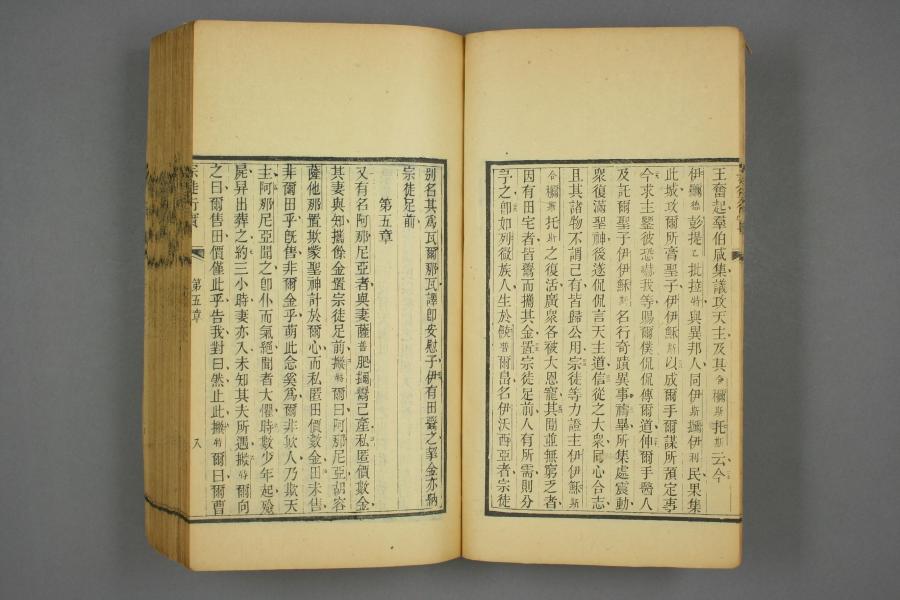 王奮起羣伯咸集議攻天主及其合櫊斯托斯云今
伊櫊德彭提乙批拉特與異邦人同伊斯擩伊利民果集
此城攻爾所膏聖子伊伊穌斯以成爾手爾謀所預定事
今求主鑒彼恐嚇我等賜爾僕侃侃傳爾道伸爾手醫人
及託爾聖子伊伊穌斯名行奇蹟異事禱畢所集處震動
衆復滿聖神後遂侃侃言天主道信從之大衆同心合志
且其諸物不謂己有皆歸公用宗徒等力證主伊伊穌斯
合櫊斯托斯之復活廣衆各被大恩寵其間並無窮乏者
因有田宅者皆鬻而攜其金置宗徒足前人有所需則分
予之卽如列微族人生於爾島名伊沃西亞者宗徒
別名其爲瓦爾那瓦譯卽安慰子伊有田鬻之挈金亦納
宗徒足前
第五章
又有名阿那尼亞者與妻薩普肥擩鬻己產私匿價數金
其妻與知攜餘金置宗徒足前撇特爾曰阿那尼亞胡容
薩他那置欺蒙聖神計於爾心而私匿田價數金田未售
非爾田乎旣售非爾金乎萌此念奚爲爾非欺人乃欺天
主阿那尼亞聞之卽仆而氣絕聞者大懼時數少年起殮
屍舁出葬之約三小時妻亦入未知其夫所遇撇特爾向
之曰爾售田價僅此乎告我對曰然止此撇特爾曰爾曹
宗徒行實
第五章
八